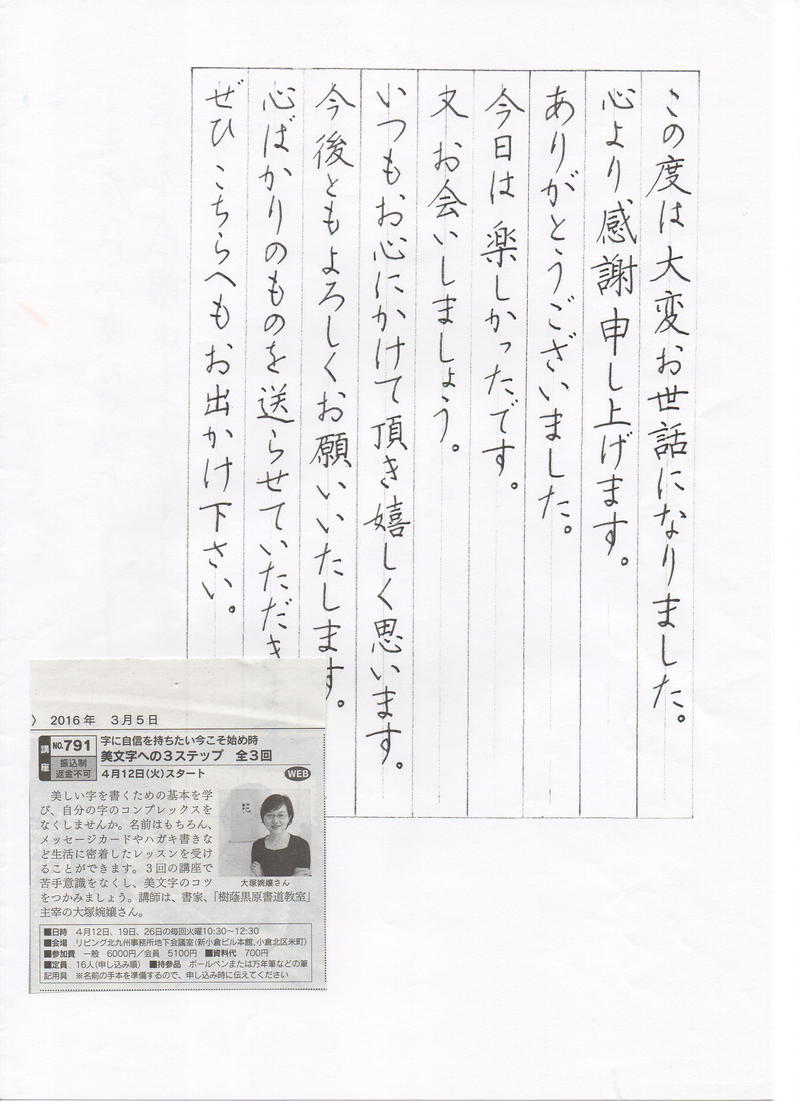 この度は大変お世話になりました。
心より感謝申し上げます。
ありがとうございました。
今日は楽しかったです。
又お会いしましょう。
いつもお心にかけて頂き嬉しく思います。
今後ともよろしくお願いいたします。
心ばかりのものを送らせていただき
ぜひこちらへもお出かけ下さい。
〉 2016年 3月5日
講座 NO.791 振込制 返金不可
字に自信を持ちたい今こそ始め時
美文字への3ステップ 全3回
4月12日(火)スタート WEB
美しい字を書くための基本を学
び、自分の字のコンプレックスを
なくしませんか。名前はもちろん、
メッセージカードやハガキ書きな
ど生活に密着したレッスンを受け
ることができます。3回の講座で
苦手意識をなくし、美文字のコツ
をつかみましょう。講師は、書家、「樹蔭黒原書道教室」
主宰の大塚婉嬢さん。
大塚婉嬢さん
■日時 4月12日、19日、26日の毎回火曜10:30〜12:30
■会場 リビング北九州事務所地下会議室(新小倉ビル本館、小倉北区米町)
■参加費 一般 6000円/会員 5100円 ■資料代 700円
■定員 16人(申し込み順) ■持参品 ボールペンまたは万年筆などの筆
記用具 ※名前の手本を準備するので、申し込み時に伝えてください